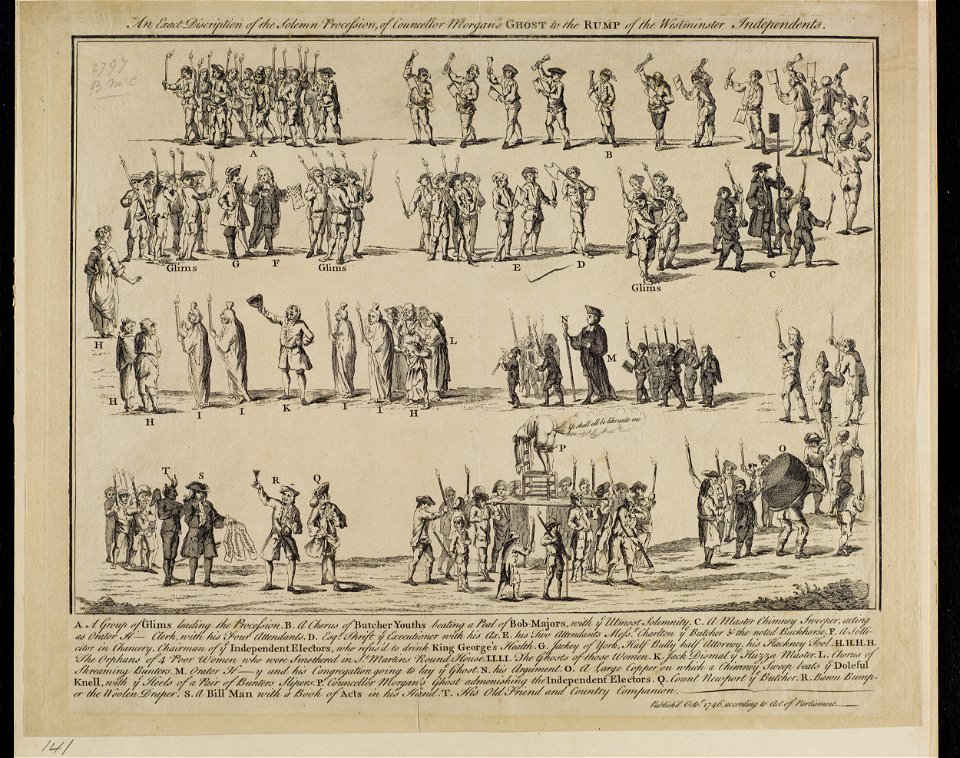 An Exact Discription of the Solemn Procession, of Councellor Morgans GHOST to the RUMP of the Westminster Independents.
2797
B M C
A
B
Glims
G
F
Glims
E
D
Glims
C
H
L
N
M
H
H
I
I
K
I
I
H
Ye shall all be like unto me
P
O
T
S
R
Q
A A Group of Glims leading the Procession. B. A Chorus of Butcher Youths beating a Peal of Bob-Majors, with ye Utmost Solemnity. C. A Master Chimney Sweeper, acting
as Orator H— Clerk, with his Four Attendants. D. Esqr. Thrift ye Executioner with his Ax. E. his Two Attendants Messrs. Charlton ye Butcher & the noted Buckhorse. F. A Solli-
citor in Chancery, Chairman of ye Independent Electors, who refus'd to drink King George's Health. G. Jackey of York, Half Bully half Attorney, his Hackney Tool. H.H.H.H.
The Orphans of 4 Poor Women who were Smothered in St. Martins Round House. I.I.I.I. The Ghosts of those Women. K. Jack Dismal ye Huzza Master. L. Chorus of
Skraming Bunters. M. Orator H——y and his Congregation going to lay ye Ghost. N. his Argument. O. A Large Copper, on which a Chimney Sweep beats ye Doleful
Knell, with ye Heels of a Pair of Bunters Slipers. P. Councellor Morgan's Ghost admonishing the Independent Electors. Q. Count Newport ye Butcher. R. Baron Bump-
er the Woolen Draper. S. A Bill Man with a Book of Acts in his Hand. T. His Old Friend and Country Companion.
Publish'd Octor. 1746. according to Act of Parliament.
141